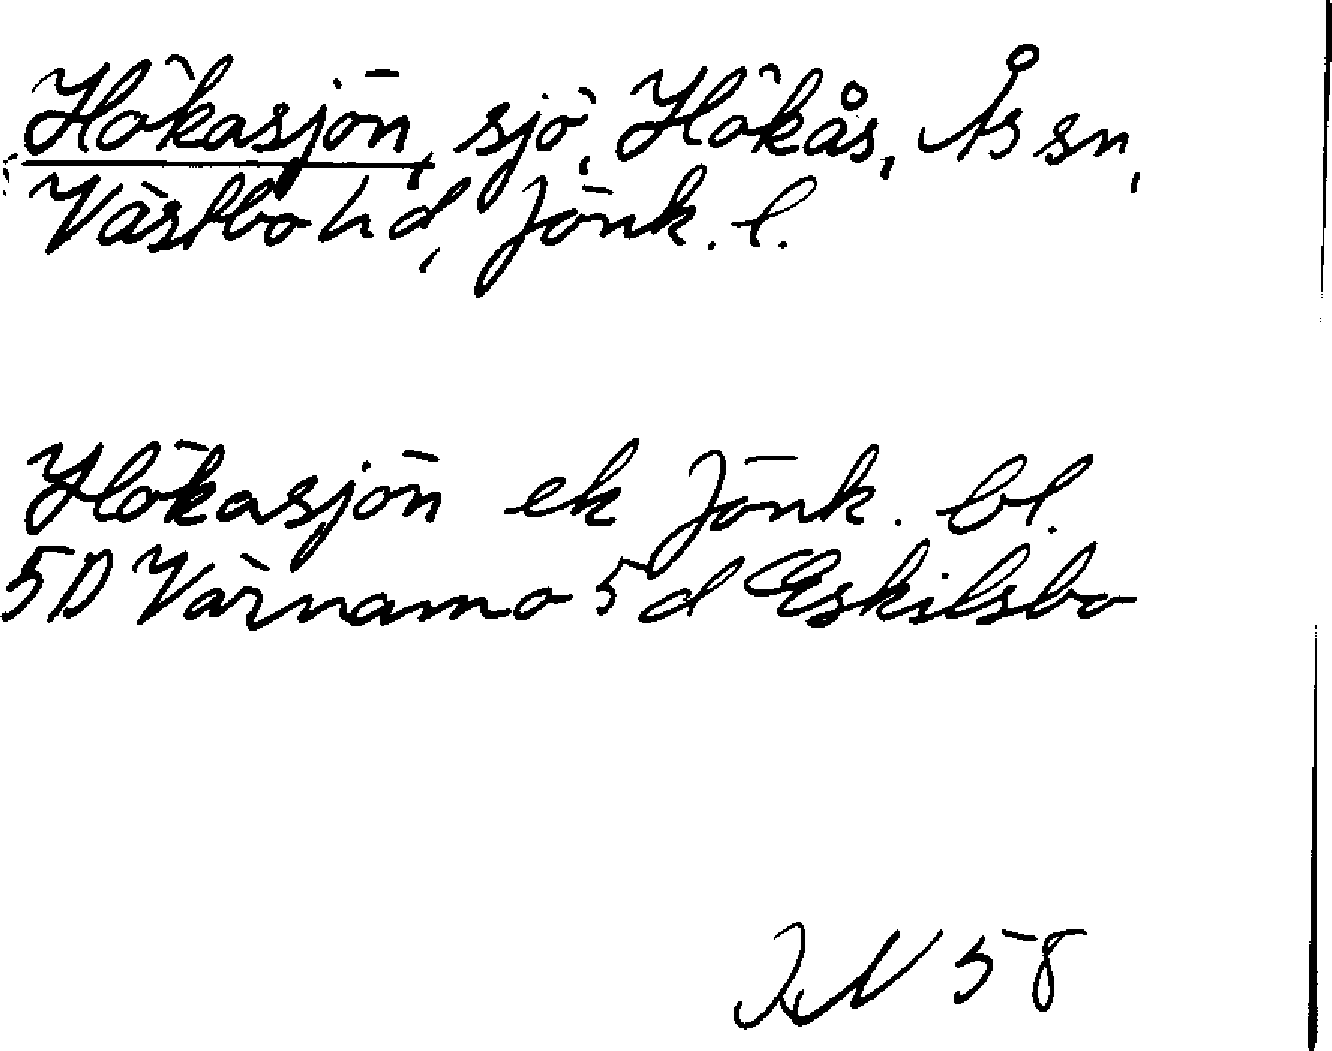 Hökasjön, sjö, Hökås, Ås sn,
Västbo hd, Jönk. l.
Hökasjön ek Jönk. bl.
5D Värnamo 5d Eskilsbo
58